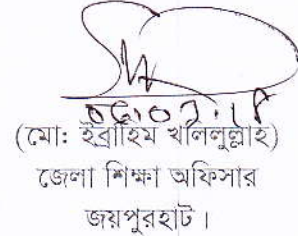 (মো: ইব্রাহিম খলিলুল্লাহ)
জেলা শিক্ষা অফিসার
জয়পুরহাট।